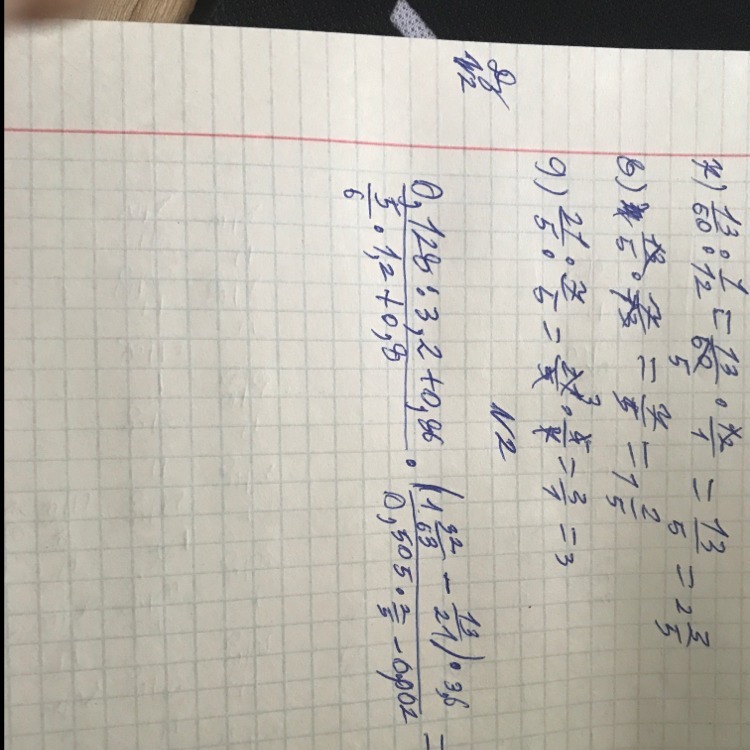 7) 13/60 : 1/12 = 13/60 5 · 12/1 = 13/5 = 2 3/5
8) 12/5 · 7/12 = 7/5 = 1 2/5
9) 21/5 : 7/5 = 21/5 3 · 5/7 = 3/1 = 3
N2
N2
0,128 : 3,2 + 0,86 / 5/6 · 1,2 + 0,8 · (1 32/63 - 13/21) · 3,6 / 0,505 · 2/5 - 0,002 =